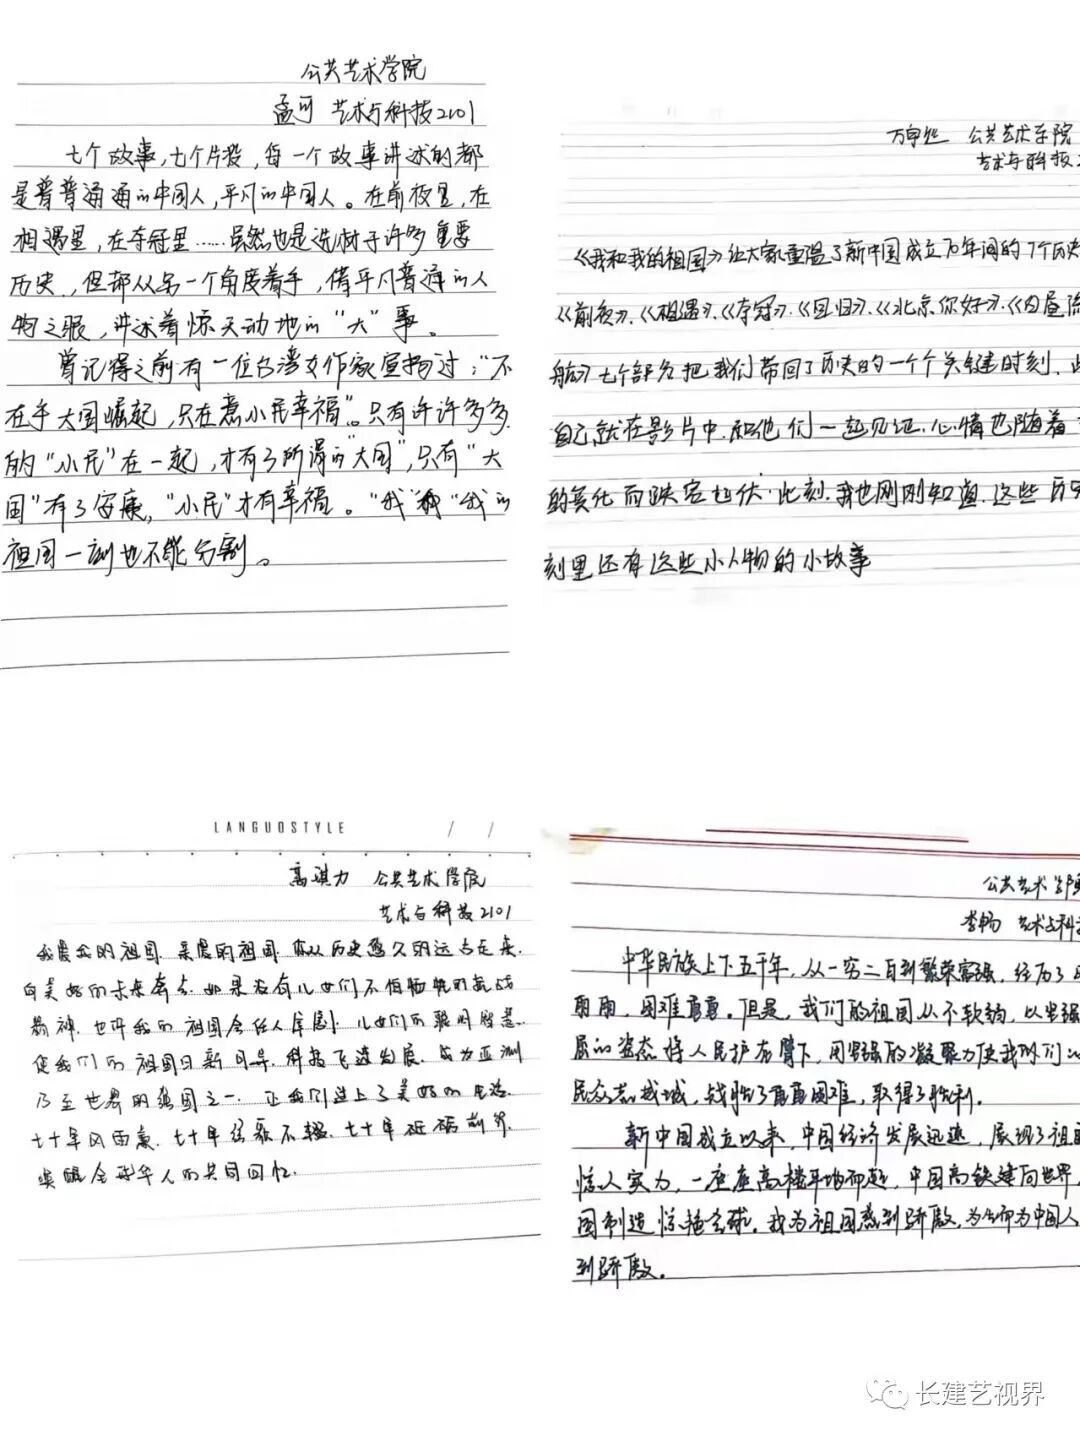 公共艺术学院
孟可 艺术与科技2101
七个故事,七个片段,每一个故事讲述的都
是普普通通的中国人,平凡的中国人。在前夜里,在
相遇里,在夺冠里……虽然也是选材于许多重要
历史,但却从另一个角度着手,借平凡普通的人
物之眼,讲述着惊天动地的“大”事。
曾记得之前有一位台湾女作家宣扬过:“不
在乎大国崛起,只在意小民幸福”。只有许许多多
的“小民”在一起,才有了所谓的“大国”,只有“大
国”有了安康,“小民”才有幸福。“我”和“我的
祖国一刻也不能分割。
公共艺术学院
艺术与科技2
《我和我的祖国》让大家重温了新中国成立70年间的7个历史
《前夜》.《相遇》.《夺冠》.《回归》.《北京你好》.《白昼流
航》七个部分把我们带回了历史的一个个关键时刻.
自己就在影片中.和他们一起见证.心情也随着
的变化而跌宕起伏.此刻.我也刚刚知道.这些历史
刻里还有这些小人物的小故事
LANGUOSTYLE / /
高琪力 公共艺术学院
艺术与科技2101
我爱我的祖国.亲爱的祖国.你从历史悠久的远古走来.
向美好的未来奔去.如果没有儿女们不怕牺牲的抗战
精神.也许我的祖国会任人宰割.儿女们的聪明智慧.
使我们的祖国日新月异.科技飞速发展.成为亚洲
乃至世界的强国之一.让我们过上了美好的生活.
七十年风雨兼.七十年弦歌不辍.七十年砥砺前行.
唤醒全球华人的共同回忆.
公共艺术学院
李畅 艺术与科技
中华民族上下五千年,从一穷二白到繁荣富强,经历了
雨雨,困难重重。但是,我们的祖国从不软弱,以坚强
屈的姿态将人民护在臂下,用坚强的凝聚力使我们们
民众志成城,战胜了重重困难,取得了胜利。
新中国成立以来,中国经济发展迅速,展现了祖国
惊人实力,一座座高楼平地而起,中国高铁建向世界,
国制造惊艳全球。我为祖国感到骄傲,为生而为中国人
到骄傲。
长建艺视界